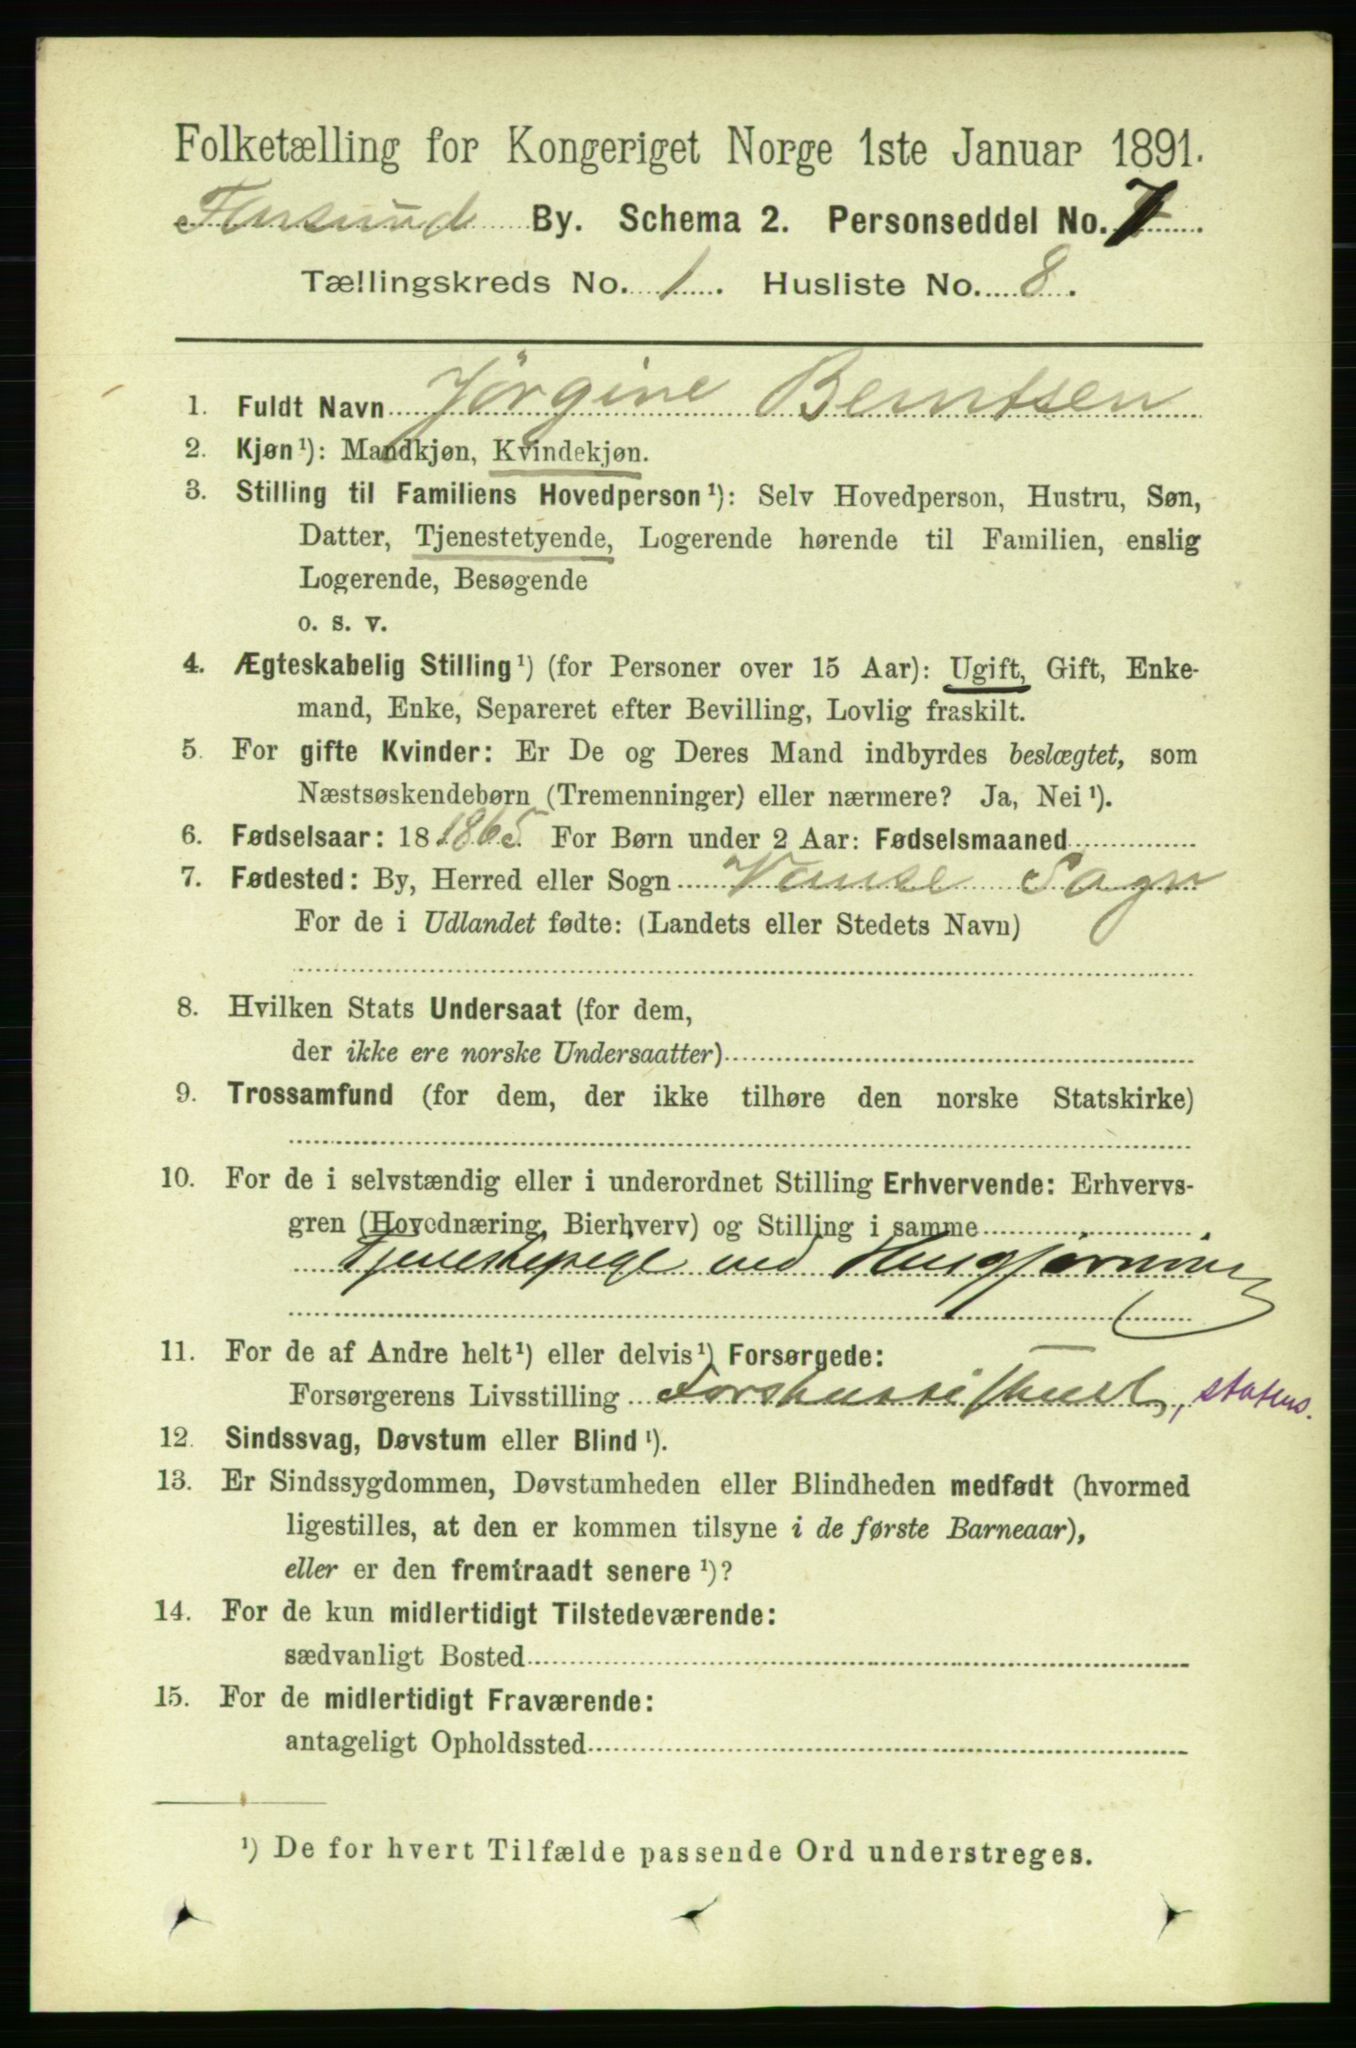 Folketælling for Kongeriget Norge 1ste Januar 1891.
Farsund By. Schema 2. Personseddel No. 7
Tællingskreds No. 1. Husliste No. 8.
1. Fuldt Navn Jørgine Berntsen
2. Kjøn¹): Mandkjøn, Kvindekjøn.
3. Stilling til Familiens Hovedperson¹): Selv Hovedperson, Hustru, Søn,
Datter, Tjenestetyende, Logerende hørende til Familien, enslig
Logerende, Besøgende
o. s. v.
4. Ægteskabelig Stilling¹) (for Personer over 15 Aar): Ugift, Gift, Enke-
mand, Enke, Separeret efter Bevilling, Lovlig fraskilt.
5. For gifte Kvinder: Er De og Deres Mand indbyrdes beslægtet, som
Næstsøskendebørn (Tremenninger) eller nærmere? Ja, Nei¹).
6. Fødselsaar: 18 1865. For Børn under 2 Aar: Fødselsmaaned
7. Fødested: By, Herred eller Sogn Vanse Sogn
For de i Udlandet fødte: (Landets eller Stedets Navn)
8. Hvilken Stats Undersaat (for dem,
der ikke ere norske Undersaatter)
9. Trossamfund (for dem, der ikke tilhøre den norske Statskirke)
10. For de i selvstændig eller i underordnet Stilling Erhvervende: Erhvervs-
gren (Hovednæring, Bierhverv) og Stilling i samme
Tjenestepige ved Husgjerning
11. For de af Andre helt¹) eller delvis¹) Forsørgede:
Forsørgerens Livsstilling statens.
12. Sindssvag, Døvstum eller Blind¹).
13. Er Sindssygdommen, Døvstumheden eller Blindheden medfødt (hvormed
ligestilles, at den er kommen tilsyne i de første Barneaar),
eller er den fremtraadt senere¹)?
14. For de kun midlertidigt Tilstedeværende:
sædvanligt Bosted
15. For de midlertidigt Fraværende:
antageligt Opholdssted
¹) De for hvert Tilfælde passende Ord understreges.